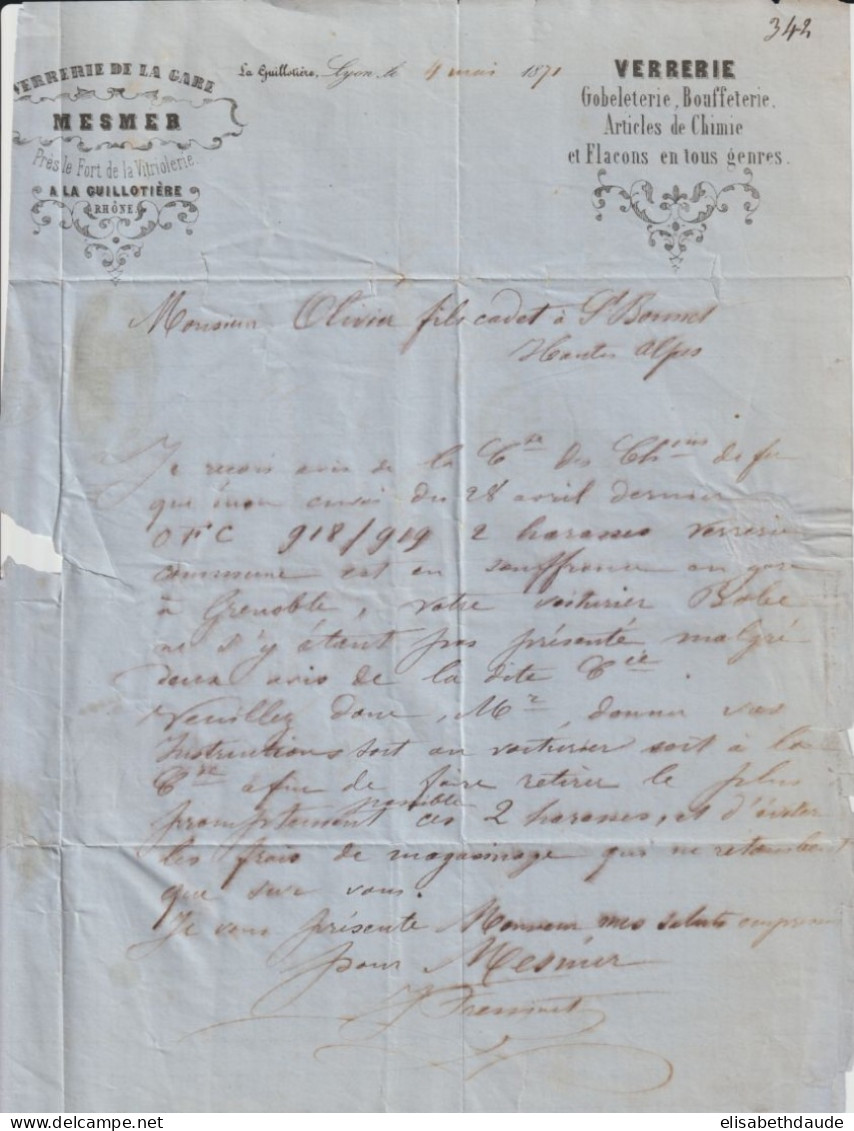 342
VERRERIE DE LA GARE
MESMER
Près le Fort de la Vitriolerie
A LA GUILLOTIÈRE
(RHÔNE)
La Guillotière, Lyon, le 4 mai 1871
VERRERIE
Gobeleterie, Bouffeterie,
Articles de Chimie
et Flacons en tous genres.
Monsieur Olivier fils cadet à St Bonnet
Hautes Alpes
Je reçois avis de la Cie des Chins de fer
que mon envoi du 28 avril dernier
918/919 2 harasses verrerie
commune est en souffrance en gare
à Grenoble, votre voiturier
ne s'y étant pas présenté malgré
deux avis de la dite Cie.
Veuillez donc, Mr, donner vos
Instructions soit au voiturier soit à la
Cie afin de faire retirer le plus
promptement possible ces 2 harasses, et d'éviter
les frais de magasinage qui ne retombent
que sur vous.
Je vous présente Monsieur mes saluts empressés
pour Mesmer